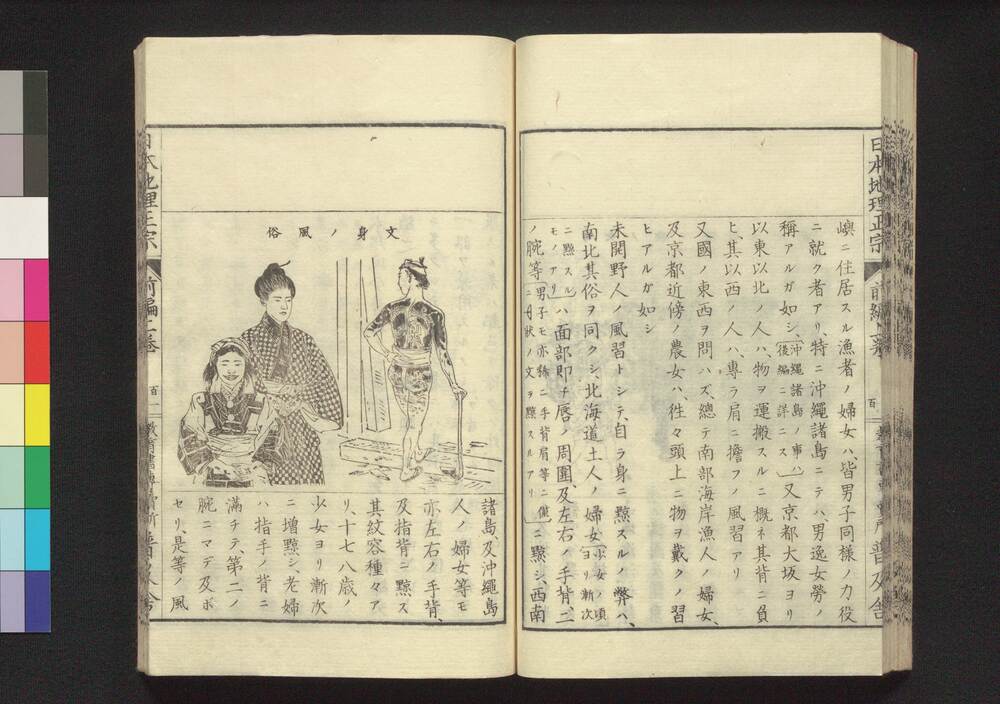 日本地理正宗
前編上巻
百
普及舎
嶼ニ住居スル漁者ノ婦女ハ、皆男子同様ノ力役
ニ就ク者アリ、特ニ沖縄諸島ニテハ男逸女勞ノ
稱アルガ如シ、(沖縄諸島ノ事ハ後編ニ詳ニス)又京都大坂ヨリ
以東以北ノ人ハ、物ヲ運搬スルニ概ネ其背ニ負
ヒ、其以西ノ人ハ、專ラ肩ニ擔フノ風習アリ
又國ノ東西ヲ問ハズ、總テ南部海岸漁人ノ婦女、
及京都近傍ノ農女ハ、徃々頭上ニ物ヲ戴クノ習
ヒアルガ如シ
未開野人ノ風習トシテ、自ラ身ニ黥スルノ弊ハ、
南北其俗ヲ同クシ、北海道土人ノ婦女(少女ノ頃ヨリ漸次
ニ黥スルモノアリ)ハ面部即チ唇ノ周圍、及左右ノ手背、二
ノ腕等(男子モ亦稀ニ手背肩等ニ僅ニ月狀ノ文ヲ黥スルアリ)ニ黥シ、西南
文身ノ風俗
諸島、及沖縄島
人ノ婦女等モ
亦左右ノ手背、
及指背ニ黥ス
其紋容種々ア
リ、十七八歳ノ
少女ヨリ漸次
ニ増黥シ、老婦
ハ指手ノ背ニ
滿チテ、第二ノ
腕ニマデ及ボ
セリ、是等ノ風
日本地理正宗
前編上巻
百一
普及舎